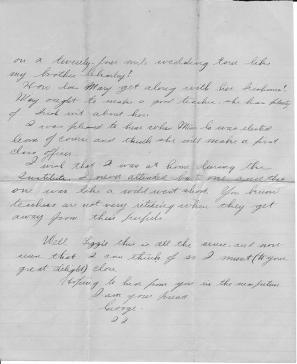 on a twenty-four mile wedding tour like
my brother Charley!
How does Mary get along with her
May ought to make a good teacher. she has plenty
of Irish wit about her.
I was pleased to hear that Miss was elected
and think she will make a first
class officer.
I wish that I was at home during the
Institute. I never attended but one and that
one was like a You know
teachers are not very retiring when they get
away from their pupils.
Well Lizzie this is all the news just now
that I can think of so I must (to your
great delight) close.
Hoping to hear from you in the near future
I am your friend
George.